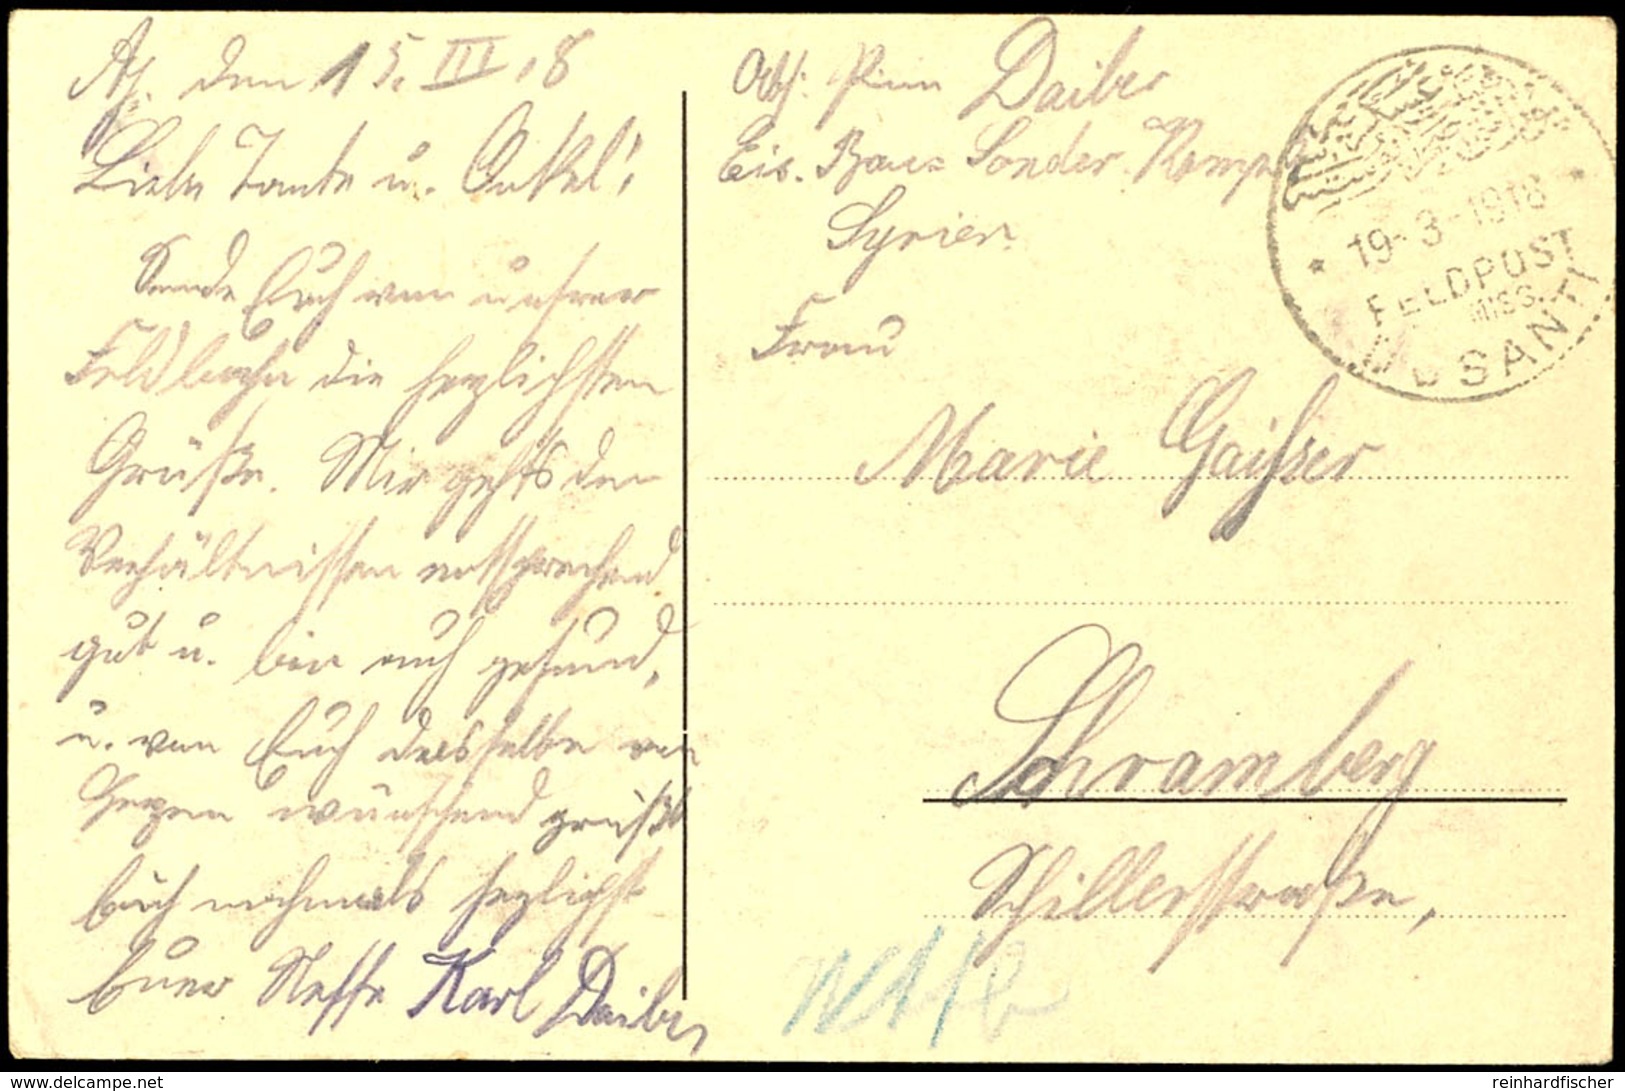 den 15. III. 18
Liebe Tante u. Onkel!
Sende Euch von unsrer
Feldbahn die herzlichsten
Grüße. Mir gehts den
Verhältnissen entsprechend
gut u. bin auch gesund,
u. von Euch dasselbe von
Herzen wünschend grüßt
Euch nochmals herzlichst
Euer Neffe Karl Daiber
Abs: Pion Daiber
Eis. Bau= Sonder-Komp
Syrien
Frau
Marie Gaißer
Schramberg
Schillerstraße,
* 19-3-1918 *
FELDPOST
MISS.
www.delcampe.net
reinhardfischer